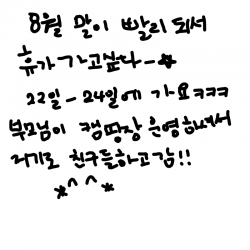 8월 말이 빨리 되서
휴가가고싶다-☆
22일-24일에 가요ㅋㅋㅋ
부모님이 캠핑장 운영하셔서
거기로 친구들하고감!!
*^^*